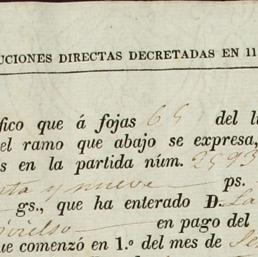 UCIONES DIRECTAS DECRETADAS EN 11
fico que á fojas 65 del li
el ramo que abajo se expresa,
s en la partida núm. 3593
nta y nueve ps.
gs., que ha enterado D. La
en pago del
ue comenzó en 1.º del mes de Se